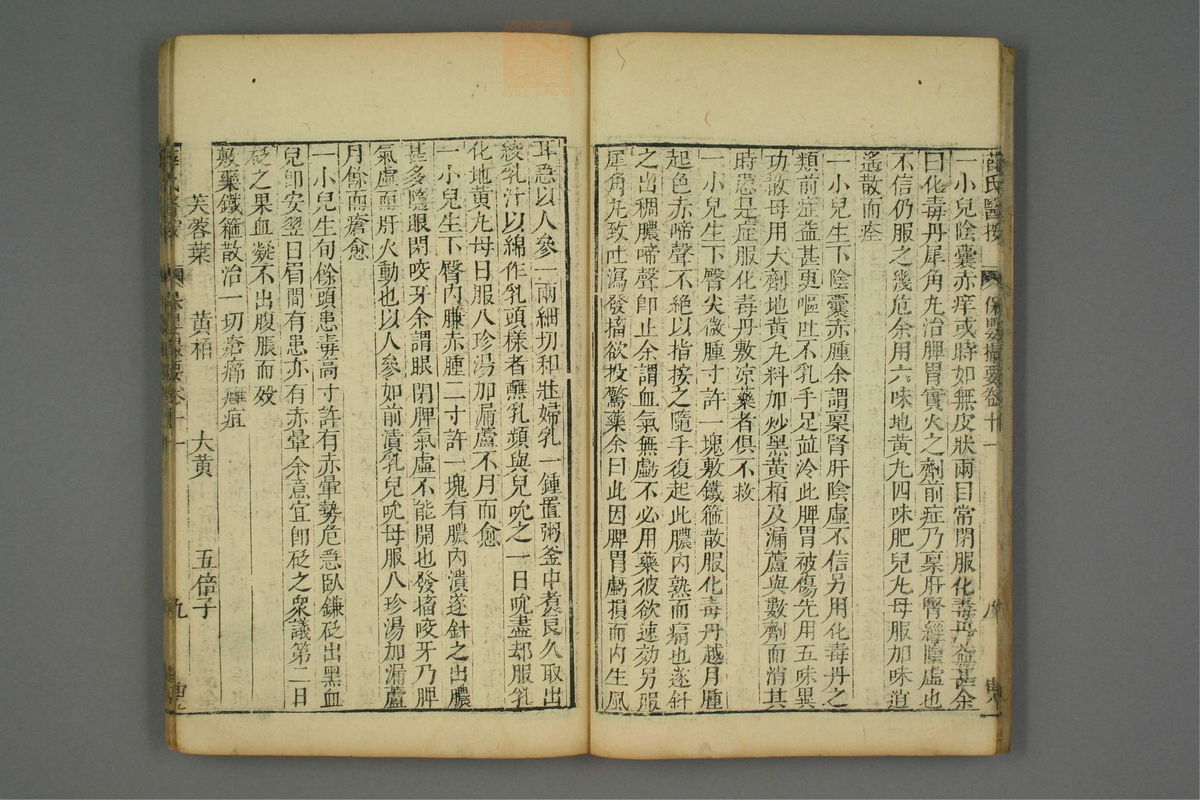 薛氏醫按 保嬰撮要卷十一 八
一小兒陰囊赤痒或時如無皮狀兩目常閉服化毒丹益甚余
曰化毒丹犀角丸治脾胃實火之劑前症乃稟肝腎經陰虛也
不信仍服之幾危余用六味地黃丸四味肥兒丸母服加味逍
遙散而痊
一小兒生下陰囊赤腫余謂稟腎肝陰虛不信另用化毒丹之
類前症益甚更嘔吐不乳手足並冷此脾胃被傷先用五味異
功散母用大劑地黃丸料加炒黑黃栢及漏蘆與數劑而消其
時患是症服化毒丹敷凉藥者俱不救
一小兒生下臀尖微腫寸許一塊敷鐵箍散服化毒丹越月腫
起色赤啼聲不絕以指按之隨手復起此膿內熟而痛也遂針
之出稠膿啼聲卽止余謂血氣無虧不必用藥彼欲速効另服
犀角丸致吐瀉發搐欲投驚藥余曰此因脾胃虧損而內生風
耳急以人參一兩細切和壯婦乳一鍾置粥釜中煮良久取出
綾乳汁以綿作乳頭樣者蘸乳頻與兒吮之一日吮盡却服乳
化地黃丸母日服八珍湯加漏蘆不月而愈
一小兒生下臀內臁赤腫二寸許一塊有膿內潰遂針之出膿
甚多隨眼閉咬牙余謂眼閉脾氣虛不能開也發搐咬牙乃脾
氣虛而肝火動也以人參如前漬乳兒吮母服八珍湯加漏蘆
月餘而瘡愈
一小兒生旬餘頭患毒高寸許有赤暈勢危急臥鐮砭出黑血
兒卽安翌日眉間有患亦有赤暈余意宜卽砭之衆議第二日
砭之果血凝不出腹脹而歿
敷藥鐵箍散治一切瘡癤癰疽
芙蓉葉 黃栢 大黃 五倍子
薛氏醫按 保嬰撮要卷十一 九